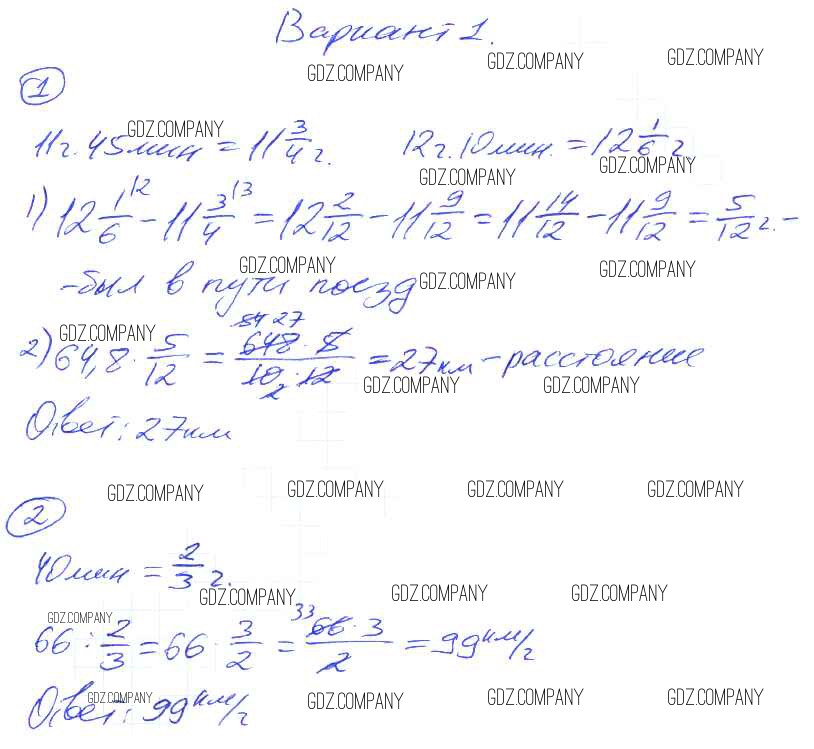 Вариант 1.
GDZ.COMPANY GDZ.COMPANY GDZ.COMPANY
1
GDZ.COMPANY
11ч. 45мин = 11 3/4 ч. 12ч. 10мин. = 12 1/6 ч
GDZ.COMPANY GDZ.COMPANY
1) 12 1/6 \2 - 11 3/4 \3 = 12 2/12 - 11 9/12 = 11 14/12 - 11 9/12 = 5/12 ч. -
GDZ.COMPANY GDZ.COMPANY GDZ.COMPANY
-был в пути поезд
GDZ.COMPANY
2) 64,8 · 5/12 = 648 · 5/10 · 12 = 27км - расстояние
54 27
2
GDZ.COMPANY GDZ.COMPANY
Ответ: 27км
GDZ.COMPANY GDZ.COMPANY GDZ.COMPANY GDZ.COMPANY
2
40мин = 2/3 ч.
GDZ.COMPANY GDZ.COMPANY GDZ.COMPANY
GDZ.COMPANY
66 : 2/3 = 66 · 3/2 = 33 66 · 3/2 = 99км/ч
GDZ.COMPANY GDZ.COMPANY GDZ.COMPANY GDZ.COMPANY
Ответ: 99км/ч